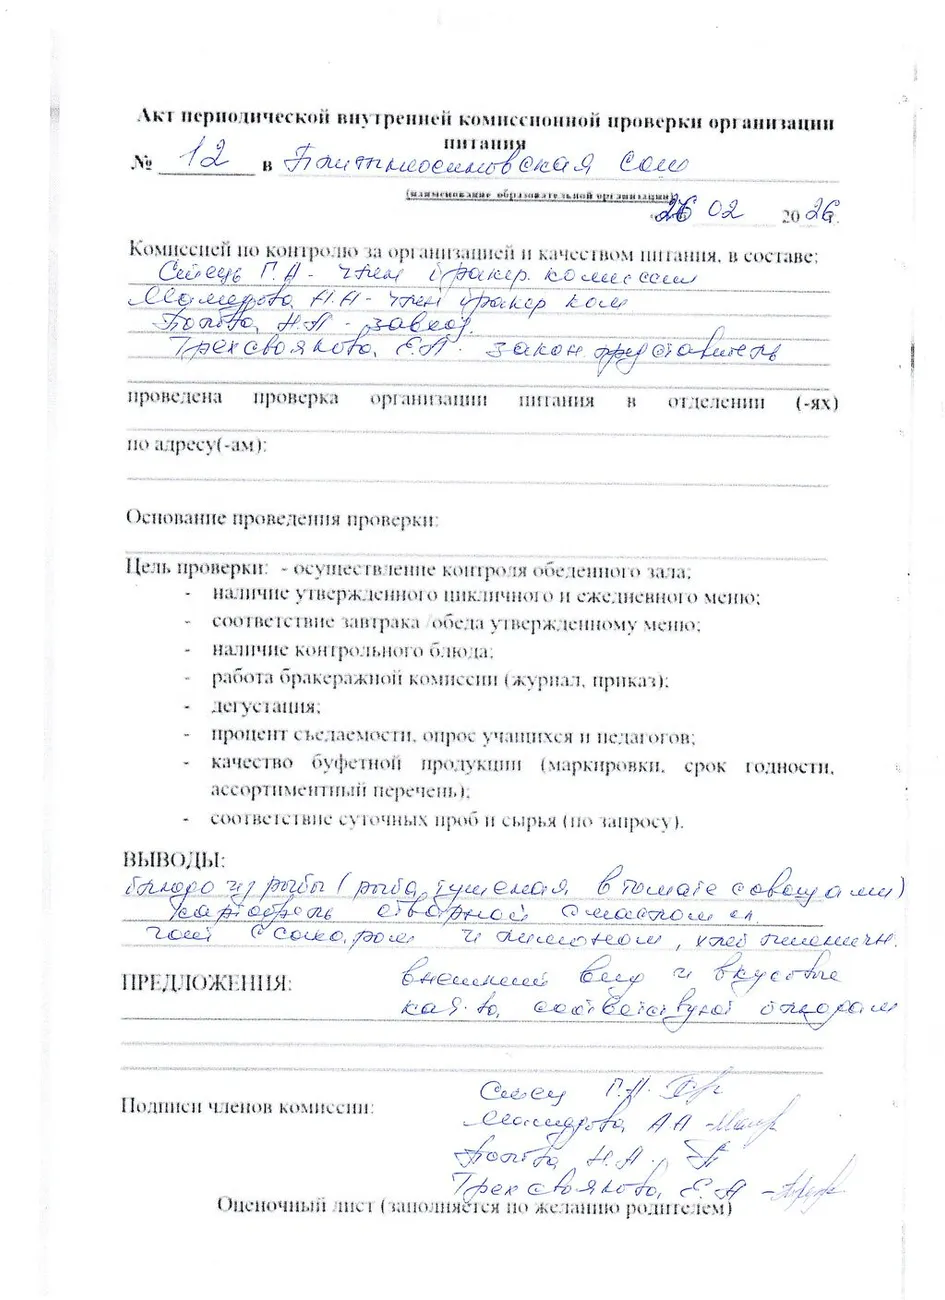 Акт периодической внутренней комиссионной проверки организации
питания
№ 12 в сош
(наименование образовательной организации)
« 26 02 2026г.
Комиссией по контролю за организацией и качеством питания, в составе:
Г.А - член бракер. комиссии
А.А - член бракер ком
Попова Н.А - завхоз.
Трехсвоякова Е.А. закон. представитель
проведена проверка организации питания в отделении (-ях)
по адресу(-ам):
Основание проведения проверки:
Цель проверки: - осуществление контроля обеденного зала;
- наличие утвержденного цикличного и ежедневного меню;
- соответствие завтрака /обеда утвержденному меню;
- наличие контрольного блюда;
- работа бракеражной комиссии (журнал, приказ);
- дегустация;
- процент съедаемости, опрос учащихся и педагогов;
- качество буфетной продукции (маркировки, срок годности,
ассортиментный перечень);
- соответствие суточных проб и сырья (по запросу).
ВЫВОДЫ:
блюдо из рыбы (рыба, тушеная в томате с овощами)
картофель отварной с маслом сл.
чай с сахаром и лимоном, хлеб пшеничн.
ПРЕДЛОЖЕНИЯ: внешний вид и вкусовые
кач-ва, соответствуют блюдам
Подписи членов комиссии: Г.А.
А А
Попова Н.А.
Трехсвоякова, Е.А -
Оценочный лист (заполняется по желанию родителем)